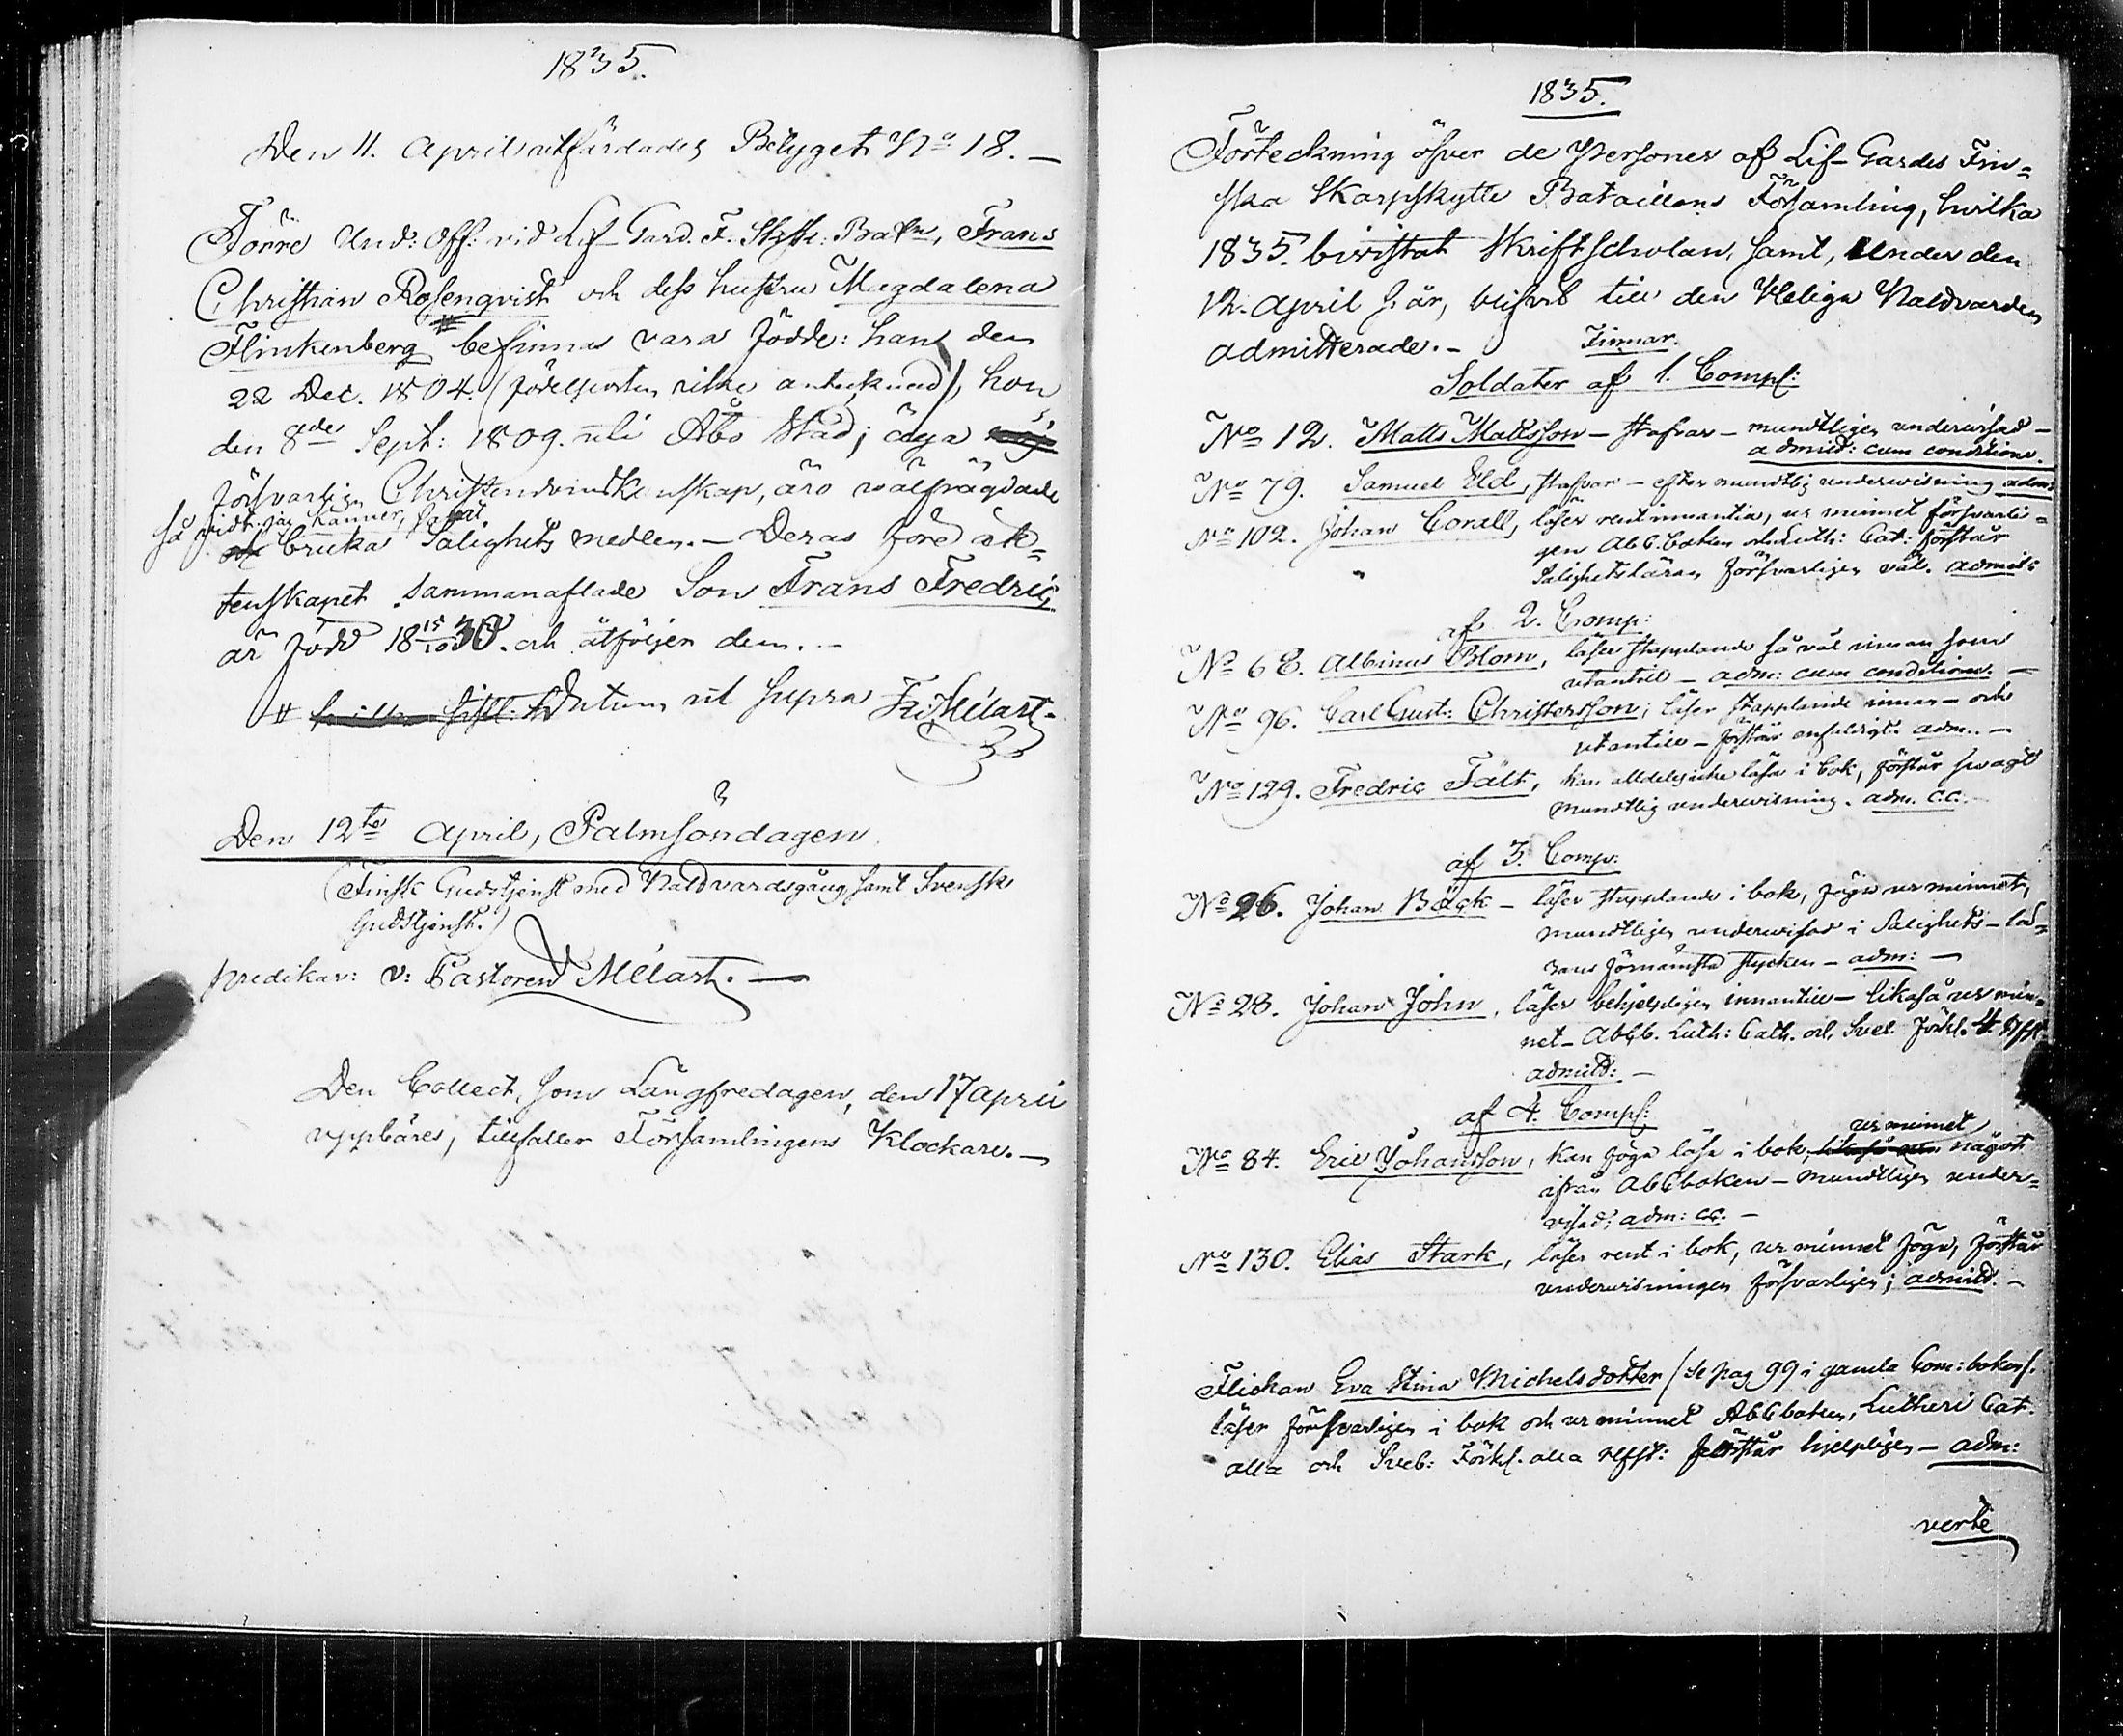 1835.
Den 11. April utfärdades Betyget No 18. —
Förre Und: Off: vid Lif-Gard. F. Skytte: Batn, Frans
Christian Rosenqvist och dess hustru Magdalena
Flinkenberg # befinnas vara födde: han den
22 Dec. 1804. (födelseorten icke antecknad), hon
den 8de Sept: 1809. uti Åbo Stad; äga
försvarlig Christendomskunskap, äro välfrägdade
så vidt jag känner, samt
bruka Salighets medlen. — Deras före äk=
tenskapet sammanaflade Son Frans Fredric,
är född 18 15/10 30. och åtföljer dem. —
# Datum ut supra Fr: Mélart.
Den 12te April, Palmsöndagen.
(Finsk Gudstjenst med Nattvardsgång samt Svensk
Gudstjenst.)
predikar: v: Pastoren Mélart. —
Den Collect, som Långfredagen, den 17 April
uppbäres, tillfaller Församlingens Klockare. —
1835.
Förteckning öfver de Personer af Lif-Gardes Fin=
ska Skarpskytte Bataillons Församling, hvilka
1835. bivistat Skriftscholan, samt, under den
12. April s. år, blifvit till den Heliga Nattvarden
admitterade. —
Finnar.
Soldater af 1. Comp:
No 12. Matts Mattsson — stafvar — mundtligen undervisad —
admitt: cum conditione.
No 79. Samuel Eld, stafvar — efter mundtlig undervisning adm:
No 102. Johan Corall, läser rent innantill, ur minnet försvarli=
gen ABC.boken och Luth: Cat: förstår
Salighetsläran försvarligen väl. admitt:
af 2. Comp:
No 68. Albinus Blom, läser stapplande så väl innan som
utantill — adm: cum conditione. —
No 96. Carl Gust: Christersson; läser stapplande innan- och
utantill — förstår enfaldigt. adm.. —
No 129. Fredric Fält, kan alldeles icke läsa i bok, förstår svagt
mundtlig undervisning. adm. c.c: —
af 3. Comp:
No 26. Johan Bäck — läser stapplande i bok, föga ur minnet,
mundtligen undervisad i Salighets-lä=
rans förnämsta stycken — adm: —
No 28. Johan John, läser behjelpligen innantill — likaså ur min=
net — ABCb. Luth: Cath. och Sveb. Förkl. 4
admitt: —
af 4. Comp:
No 84. Eric Johansson, kan föga läsa i bok, ur minnet något
ifrån ABCboken — mundtligen under=
visad; adm: cc. —
No 130. Elias Stark, läser rent i bok, ur minnet föga, förstår
undervisningen försvarligen; admitt. —
Flickan Eva Stina Michelsdotter (Se pag 99 i gamla Com: boken).
läser försvarligen i bok och ur minnet ABCboken, Lutheri Cat.
alla och Sveb: Förkl. alla förstår hjelpligen — adm:
verte